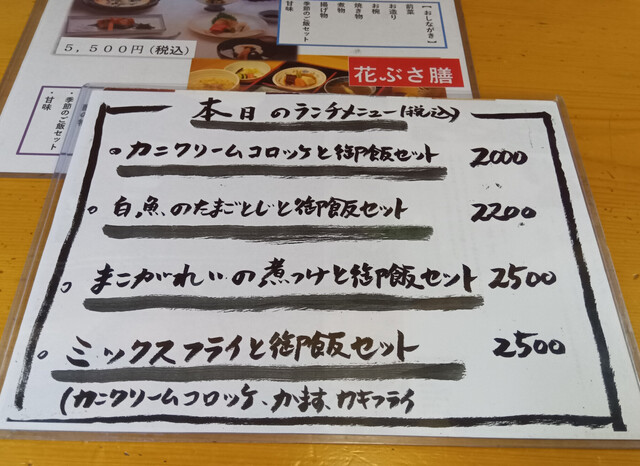 【おしながき】
前菜
お造り
お椀
焼き物
煮物
揚げ物
季節のご飯セット
甘味
5,500円(税込)
花ぶさ膳
・季節のご飯セット
・甘味
本日のランチメニュー(税込)
。カニクリームコロッケと御飯セット 2000
。白魚のたまごとじと御飯セット 2200
。まこがれいの煮つけと御飯セット 2500
。ミックスフライと御飯セット 2500
(カニクリームコロッケ、かます、カキフライ